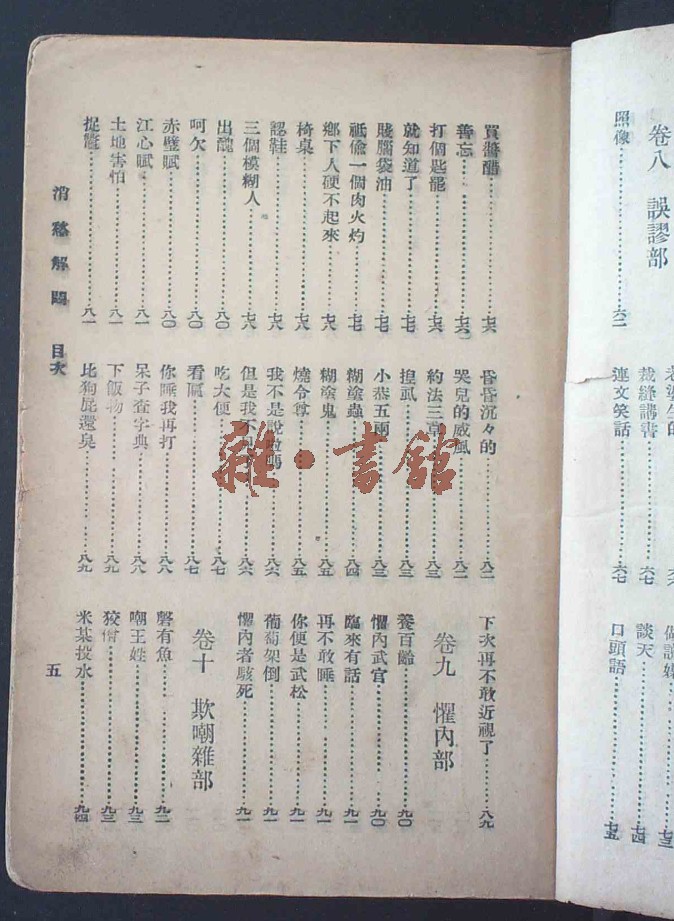 卷八 誤謬部
照像……六二
裁縫講書……六七
連文笑話……六七
談天……七四
口頭語……七五
買醬醋……七六
善忘……七六
打個匙罷……七六
就知道了……七七
賤腦袋油……七七
祗偷一個肉火灼……七七
鄉下人硬不起來……七八
椅桌……七八
認鞋……七八
三個模糊人……七八
出醜……八〇
呵欠……八〇
赤壁賦……八〇
江心賦……八一
土地害怕……八一
昏昏沉々的……八二
哭兒的威風……八二
約法三章……八三
小恭五兩……八三
糊塗蟲……八四
糊塗鬼……八五
燒令尊……八五
我不是說……八六
但是我不……八六
吃大便……八七
看匾……八七
你睡我再打……八八
呆子查字典……八八
下飯物……八九
比狗屁還臭……八九
下次再不敢近視了……八九
卷九 懼內部
養百齡……九〇
懼內武官……九〇
臨來有話……九一
再不敢睡……九一
你便是武松……九一
葡萄架倒……九一
懼內者駭死……九一
卷十 欺嘲雜部
磬有魚……九二
嘲王姓……九三
投水……九四
消愁解悶 目次
五
雜·書館